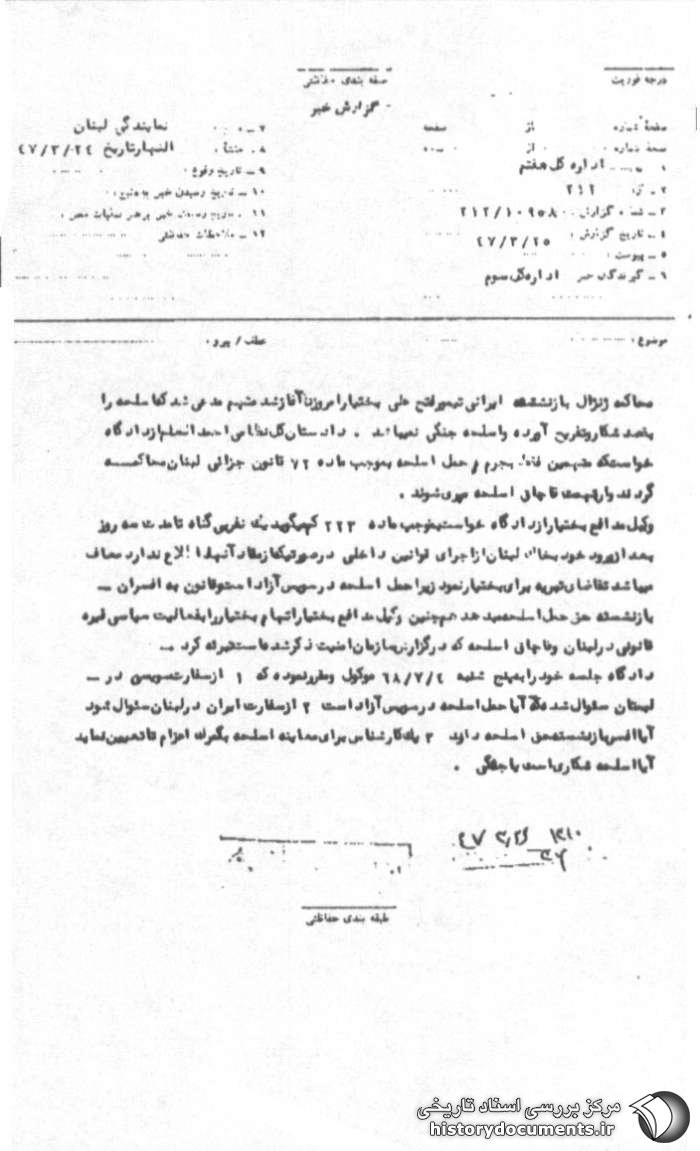 درجه فوریت
طبقه بندی حفاظتی
گزارش خبر
صفحهٔ شماره از صفحه
نسخهٔ شماره از نسخه
۱ ـ به: اداره کل هفتم
۲ ـ از: ۲۱۲
۳ ـ شماره گزارش: ۲۱۲/۱۰۹۵۸
۴ ـ تاریخ گزارش: ۴۷/۳/۲۵
۵ ـ پیوست:
۶ ـ گیرندگان خبر اداره کل سوم
۷ ـ نمایندگی لبنان
۸ ـ منشأ: النهار تاریخ ۴۷/۳/۲۴
۹ ـ تاریخ وقوع:
۱۰ ـ تاریخ رسیدن خبر به منبع:
۱۱ ـ تاریخ رسیدن خبر به رهبر عملیات
۱۲ ـ ملاحظات حفاظتی
موضوع:
عطف / پیرو:
محاکمه ژنرال بازنشسته ایرانی تیمور فتح علی بختیار امروز آغاز شد متهم مدعی شد که اسلحه را
بقصد شکار و تفریح آورده و اسلحه جنگی نمیباشد . دادستان کل نظامی اسعد از دادگاه
خواست که متهمین بجرم حمل اسلحه بموجب ماده ۷۲ قانون جزائی لبنان محاکمه
گردند و از تهمت قاچاق اسلحه مبری شوند .
وکیل مدافع بختیار از دادگاه خواست بموجب ماده ۲۲۳ که میگوید یک نفر بی گناه تا مدت سه روز
بعد از ورود خود بخاک لبنان از اجرای قوانین داخلی در صورتیکه از مفاد آنها اطلاع ندارد معاف
میباشد تقاضای تبریه برای بختیار نمود زیرا حمل اسلحه در سویس آزاد است و قانون به افسران ـ
بازنشسته حق حمل اسلحه میدهد همچنین وکیل مدافع بختیار اتهام بختیار را بفعالیت سیاسی غیره
قانونی در لبنان و قاچاق اسلحه که در گزارش سازمان امنیت ذکر شده است تبرئه کرد ..
دادگاه جلسه خود را به پنج شنبه ۶۸/۷/۴ موکول و مقرر نموده که ۱ از سفارت سویس در ـ
لبنان سئوال شده که آیا حمل اسلحه در سویس آزاد است ۲ از سفارت ایران در لبنان سئوال شود
آیا افسر بازنشسته حق اسلحه دارد ۳ یک کارشناس برای معاینه اسلحه بگمرک اعزام تا تعیین نماید
آیا اسلحه شکاری است یا جنگی .
۴۷
طبقه بندی حفاظتی
مرکز بررسی اسناد تاریخی
historydocuments.ir